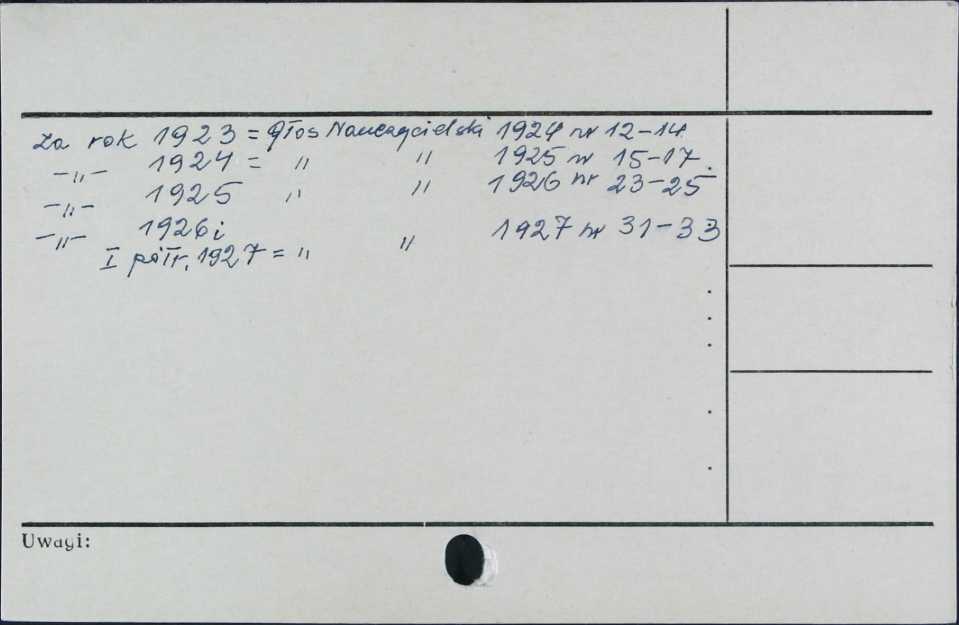 Za rok 1923 = Głos Nauczycielski 1924 nr 12-14.
-„- 1924 = „ „ 1925 nr 15-17.
-„- 1925 „ „ 1926 nr 23-25
-„- 1926 i
I półr. 1927 = „ „ 1927 nr 31-33
Uwagi: